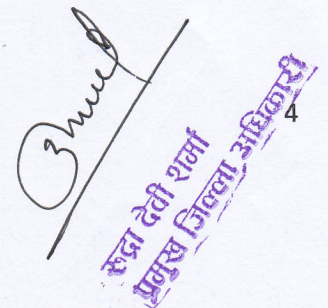 रुद्रा देवी शर्मा
प्रमुख जिल्ला अधिकारी
4